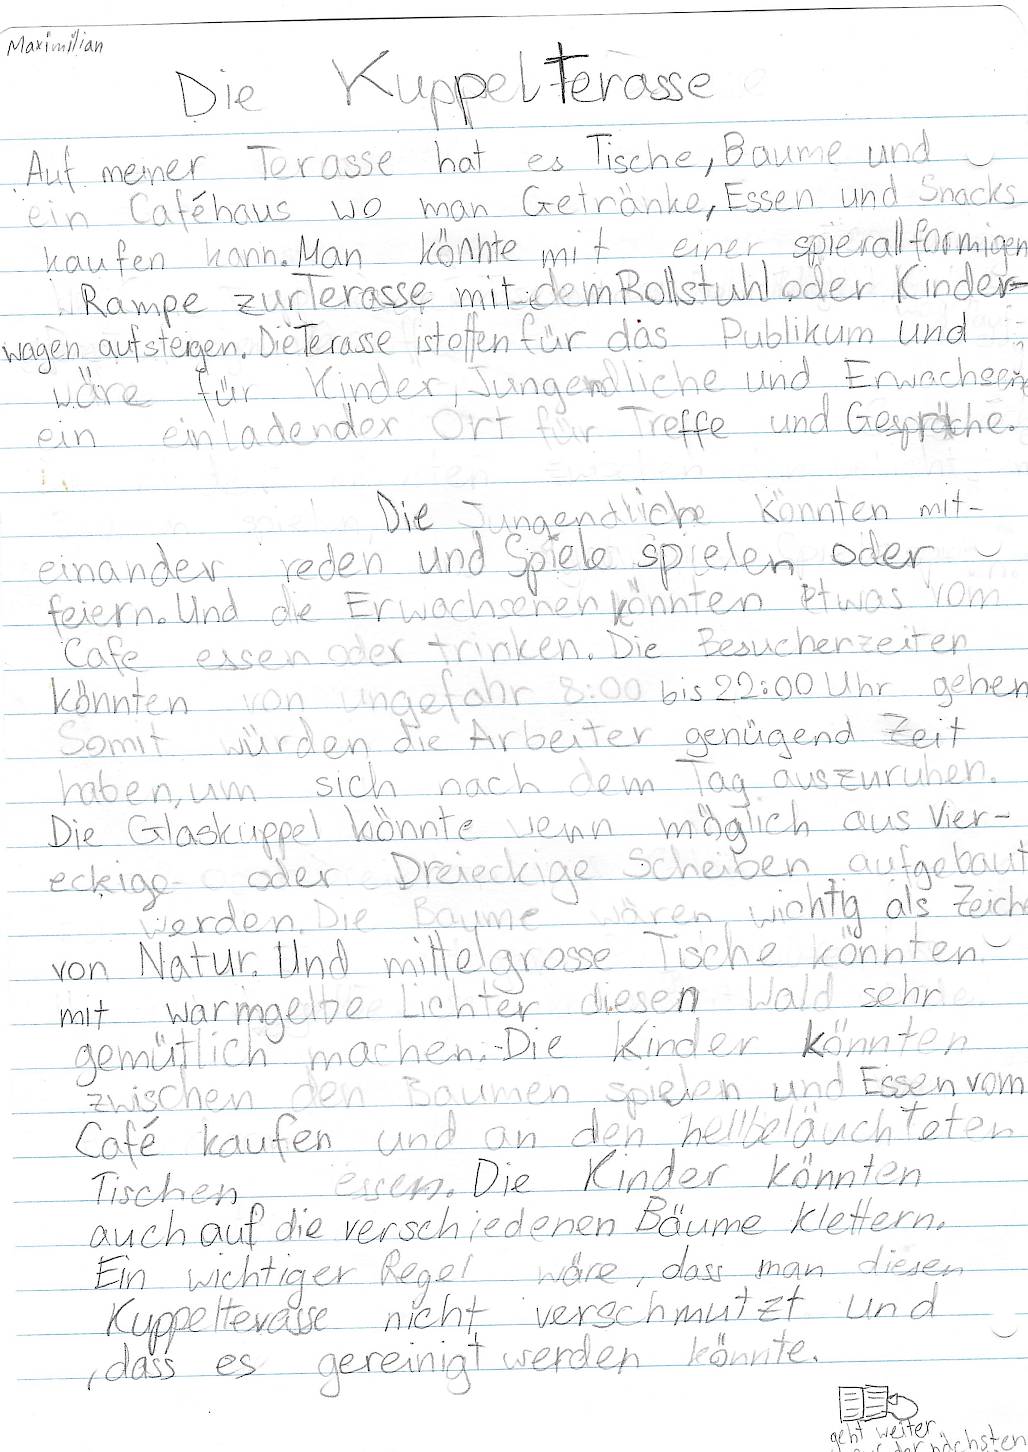 Maximilian
Die Kuppelterasse
Auf meiner Terasse hat es Tische, Bäume und
ein Caféhaus wo man Getränke, Essen und Snacks
kaufen kann. Man könnte mit einer spierallförmigen
Rampe zur Terasse mit dem Rollstuhl oder Kinder-
wagen aufsteigen. Die Terasse ist offen für das Publikum und
wäre für Kinder, Jungendliche und Erwachsene
ein einladender Ort für Treffe und Gespräche.
Die Jungendliche könnten mit-
einander reden und Spiele spielen oder
feiern. Und die Erwachsenen könnten etwas vom
Cafe essen oder trinken. Die Besucherzeiten
könnten von ungefähr 8:00 bis 22:00 Uhr gehen
Somit würden die Arbeiter genügend Zeit
haben, um sich nach dem Tag auszuruhen.
Die Glaskuppel könnte wenn möglich aus Vier-
eckige oder Dreieckige Scheiben aufgebaut
werden. Die Bäume wären wichtig als Zeiche
von Natur. Und mittelgrosse Tische könnten
mit warmgelbe Lichter diesen Wald sehr
gemütlich machen. Die Kinder könnten
zwischen den Bäumen spielen und Essen vom
Café kaufen und an den hellbeläuchteten
Tischen essen. Die Kinder könnten
auch auf die verschiedenen Bäume klettern.
Ein wichtiger Regel wäre, dass man diesen
Kuppelterasse nicht verschmutzt und
, dass es gereinigt werden könnte.
geht weiter
der nächsten